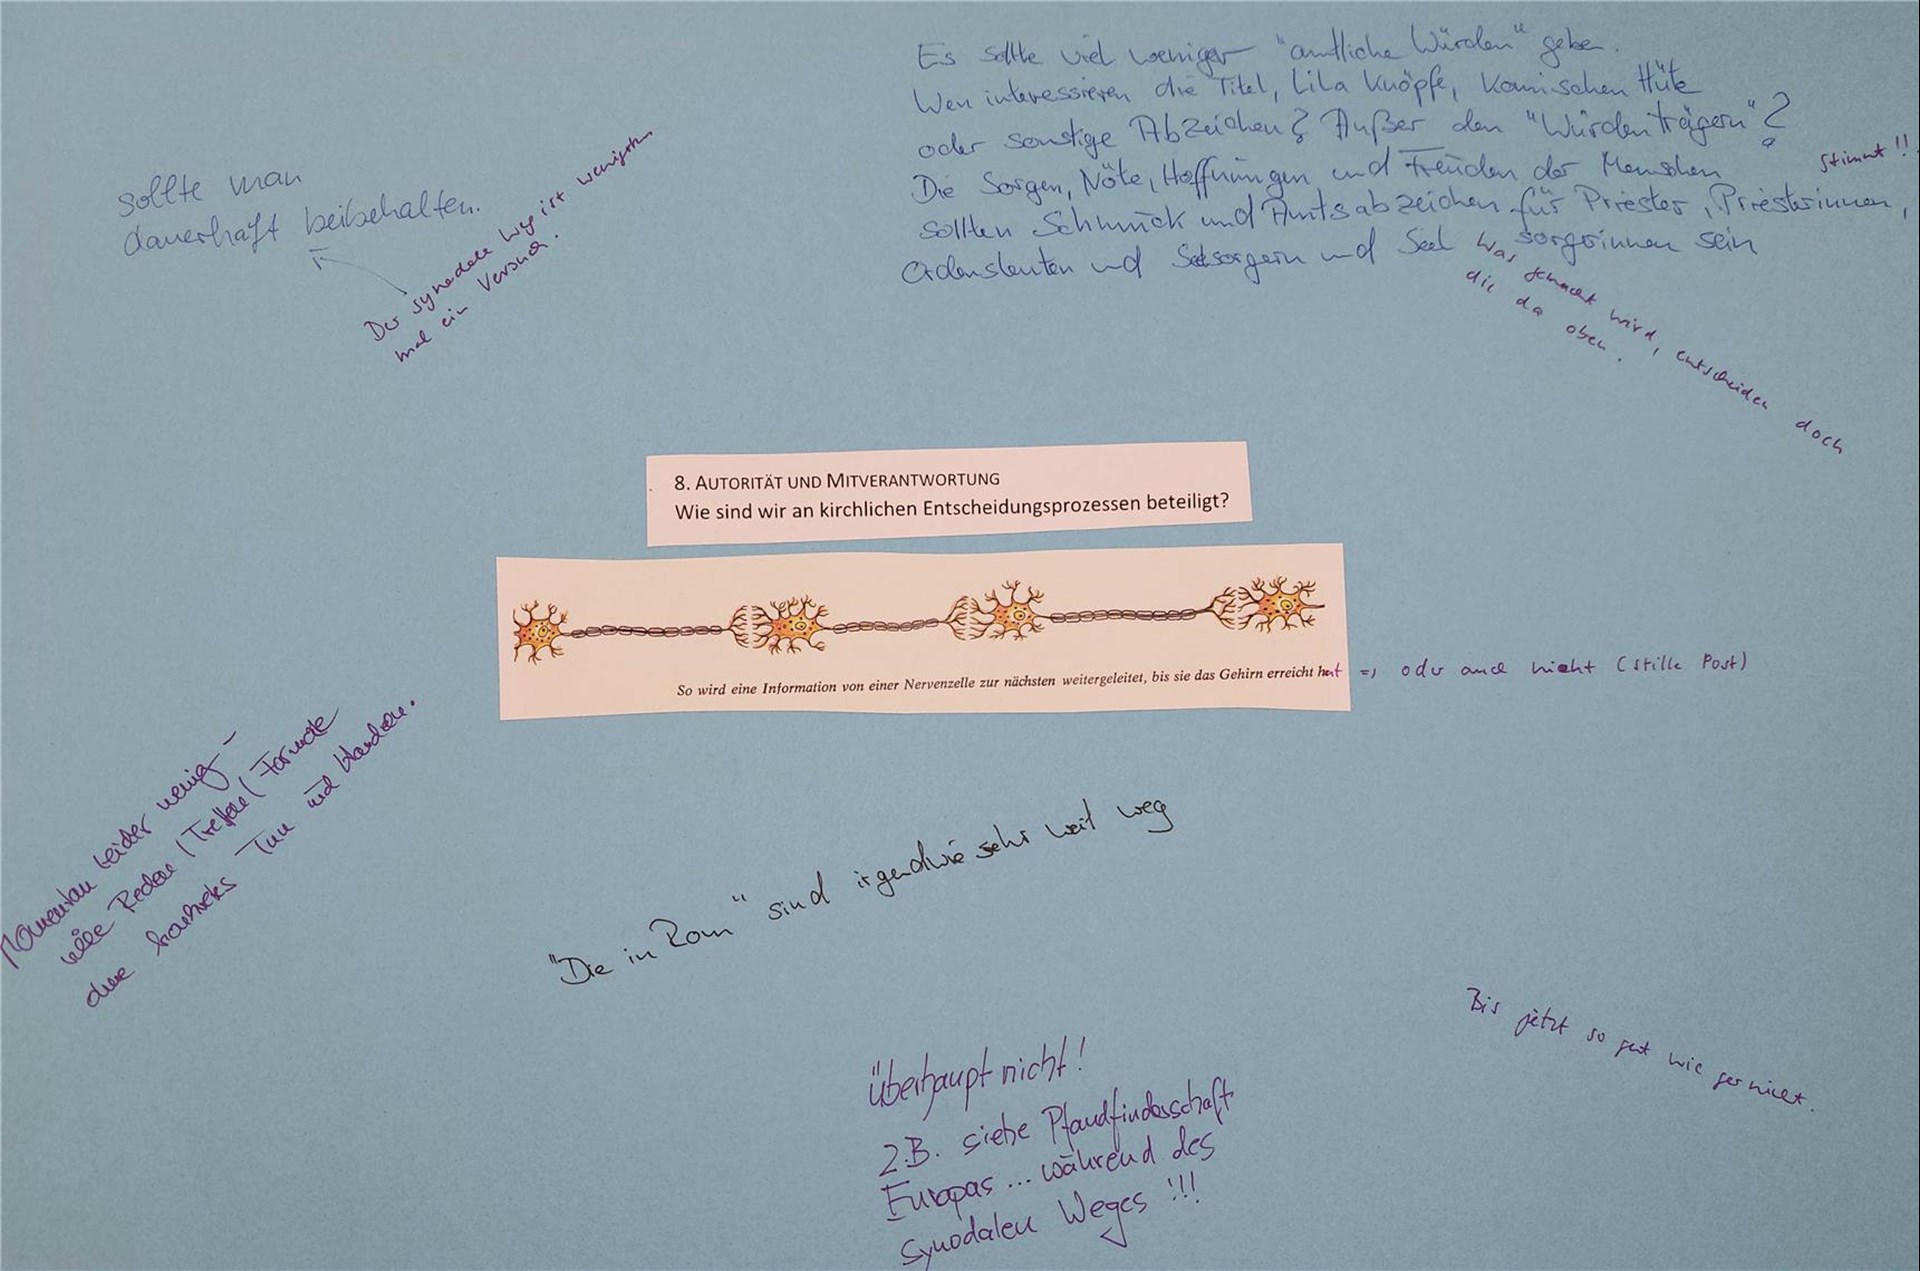 Es sollte viel weniger "amtliche Würden" geben.
Wen interessieren die Titel, Lila Knöpfe, komischen Hüte
oder sonstige Abzeichen? Außer den "Würdenträgern"?
Die Sorgen, Nöte, Hoffnungen und Freuden der Menschen
sollten Schmuck und Amtsabzeichen für Priester, Priesterinnen,
Ordensleuten und Seelsorgern und Seel sorgerinnen sein
stimmt!!
Was gemacht wird, entscheiden doch
die da oben.
sollte man
dauerhaft beibehalten.
Der synodale Weg ist wenigstens
mal ein Versuch.
8. AUTORITÄT UND MITVERANTWORTUNG
Wie sind wir an kirchlichen Entscheidungsprozessen beteiligt?
So wird eine Information von einer Nervenzelle zur nächsten weitergeleitet, bis sie das Gehirn erreicht hat => oder auch nicht (stille Post)
Momentan leider wenig -
viele Reden / Treffen / Formate
ohne konkretes Tun und Handeln.
"Die in Rom" sind irgendwie sehr weit weg
Bis jetzt so gut wie gar nicht.
Überhaupt nicht!
Z.B. siehe Pfandfinderschaft
Europas ... während des
Synodalen Weges !!!